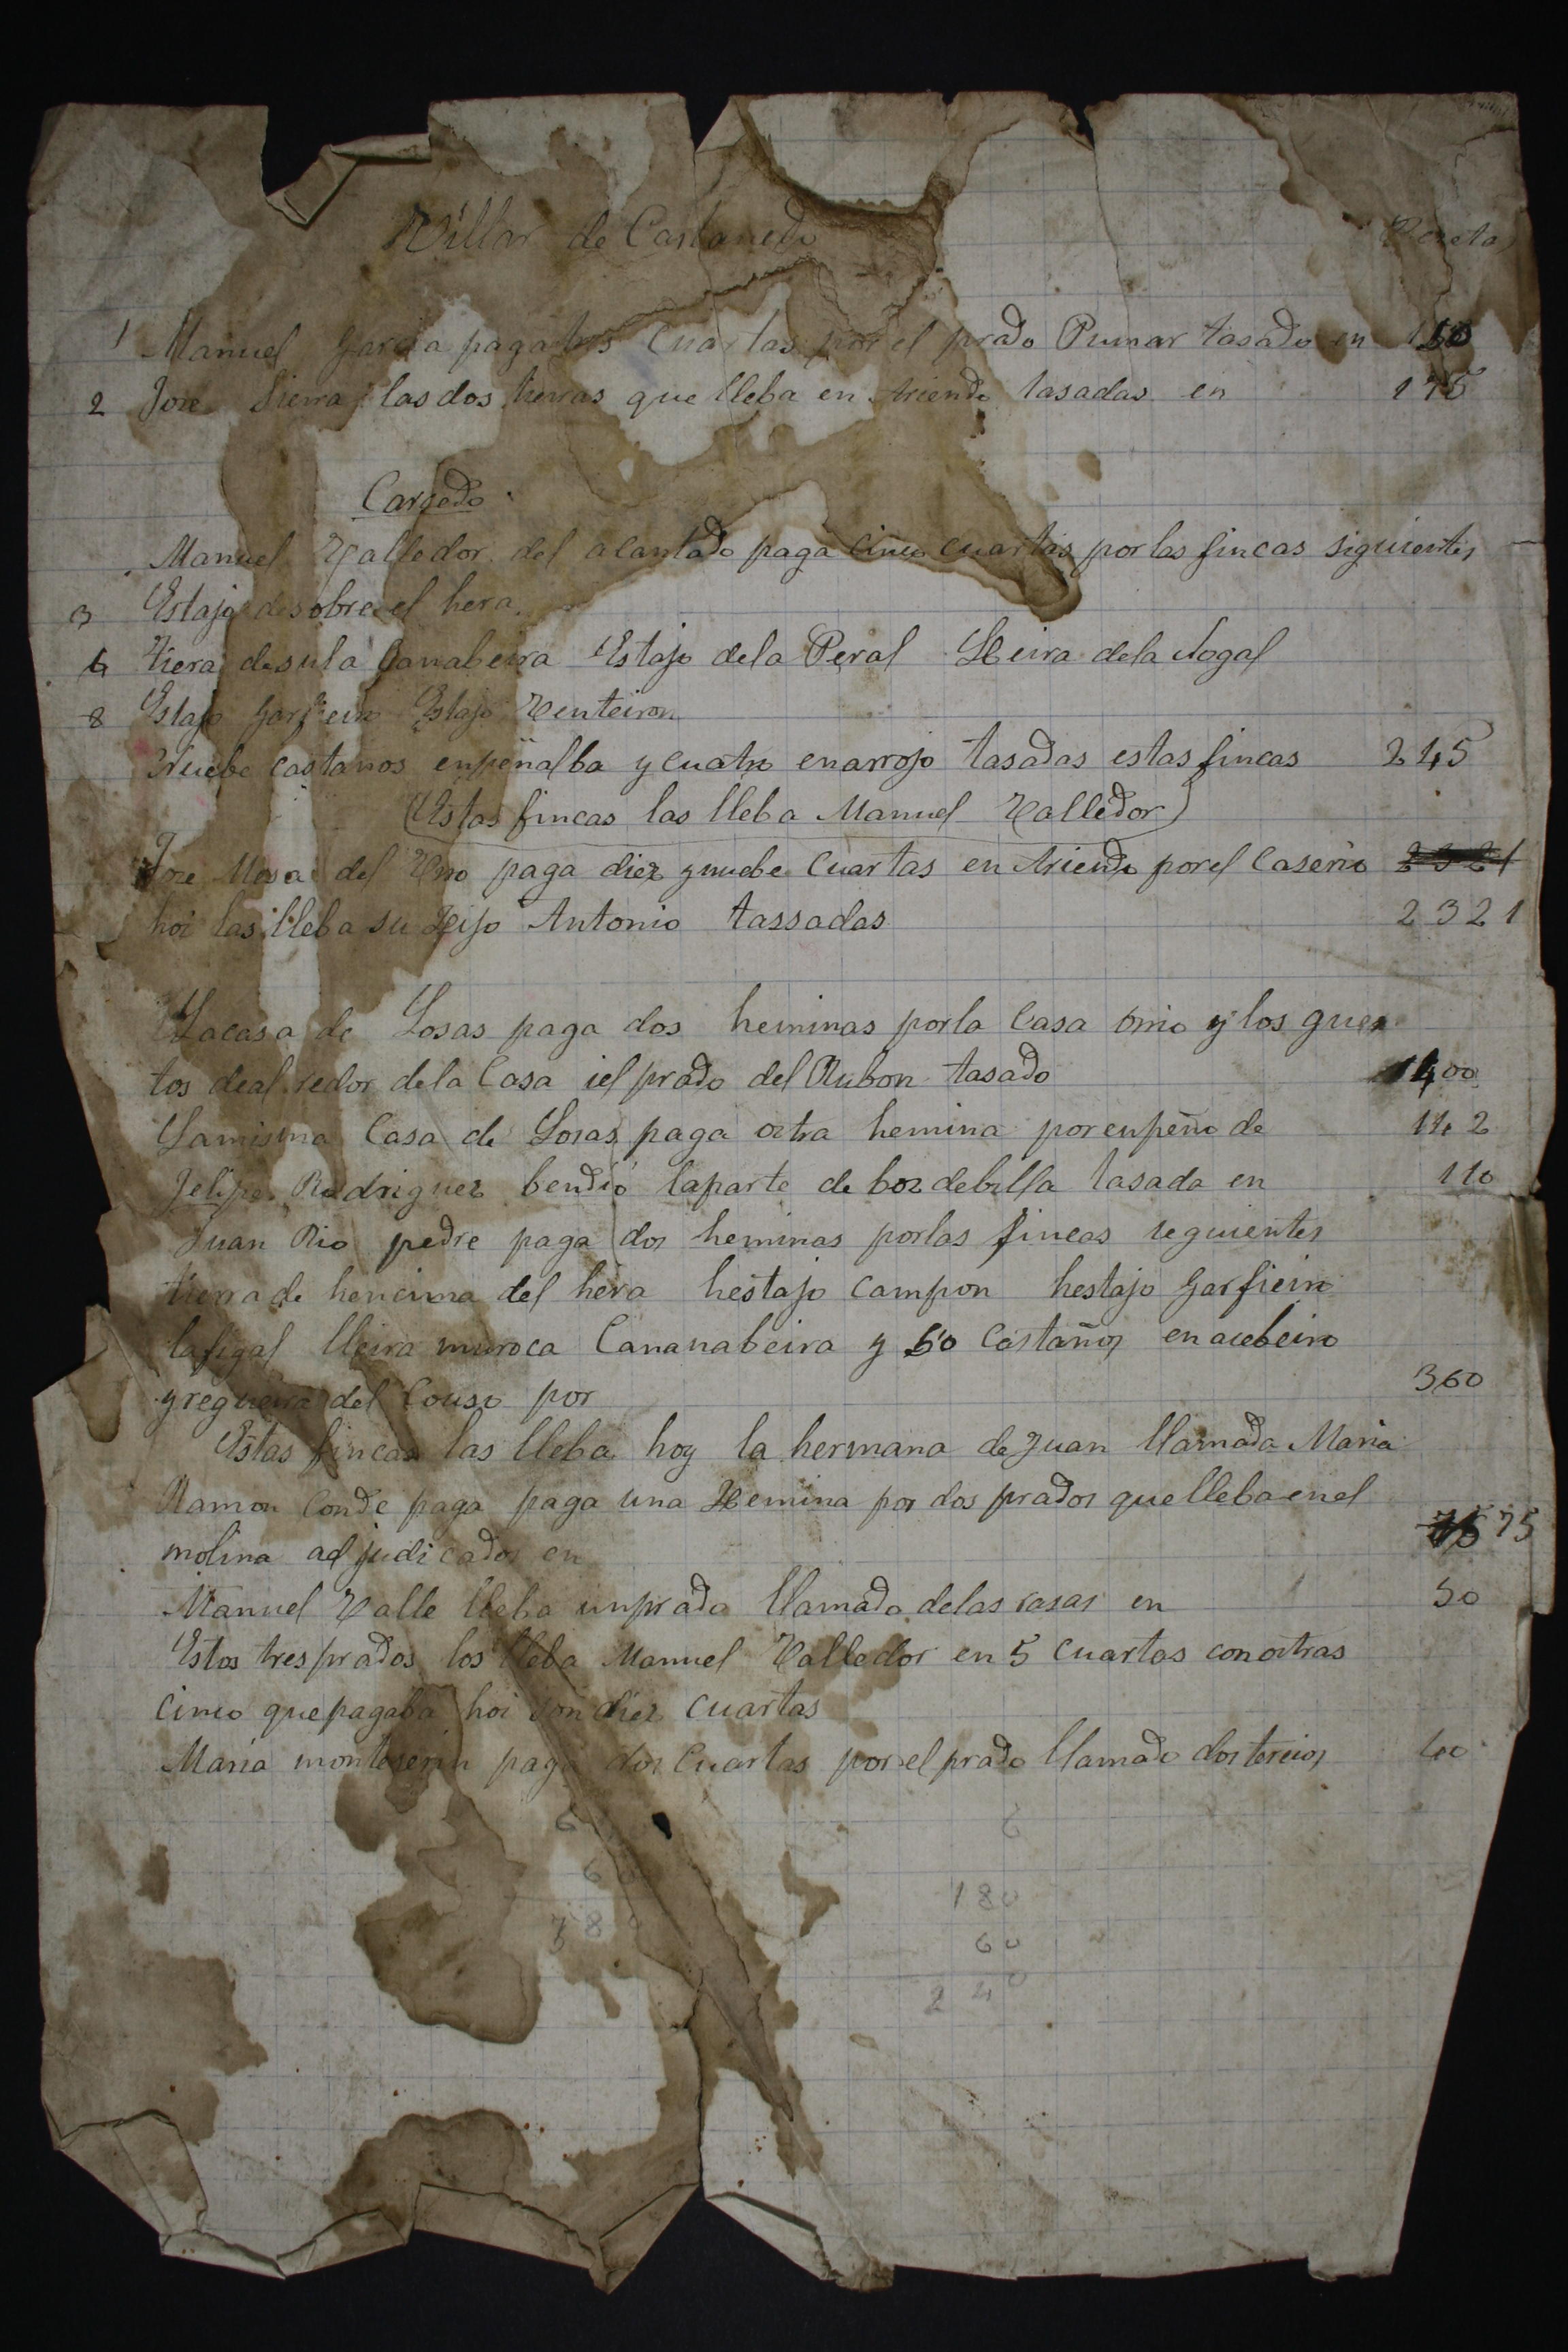 Villar de Castanedo Pesetas
1 Manuel Garcia paga tres Cuartas por el prado Pumar tasado en 150
2 Jose Sierra las dos tierras que lleba en Ariendo tasadas en 175
Carcedo
Manuel Valledor del acantado paga cinco cuartas por las fincas siguientes
3 Estajo de sobre el hera
6 Tiera desula Canabeira Estajo dela Peral Lleira dela Nogal
8 Estajo Garfieiro Estajo Venteiron
Nuebe castanos enpeñalba y cuatro enarrojo tasadas estas fincas 245
(Estas fincas las lleba Manuel Valledor)
Jose Mesa del paga diez ynuebe Cuartas en Ariendo porel Caserio 2321
hoi las lleba su Hijo Antonio tassadas 2321
Lacasa de Losas paga dos heminas porla Casa orrio y los guer
tos deal redor dela Casa iel prado del Rubon tasado 1400
Lamisma Casa de Losas paga otra hemina porenpeño de 112
Felipe Rodriguez bendió laparte de bozdebilla tasada en 110
Juan Rio pedre paga dos heminas porlas fincas seguientes
tierra de hencima del hera hestajo campon hestajo Garfieiro
lafigal lleira muroca Cananabeira y 50 Castaños en acebeiro
y regueira del Couso por 360
Estas fincas las lleba hoy la hermana de Juan llamada Maria
Ramon Conde paga paga una Hemina por dos prados quellebaenel
molina adjudicados en 75 75
Manuel Valle lleba unprado llamado delas rosas en 50
Estos tres prados los lleba Manuel Valledor en 5 cuartas conotras
cinco quepagaba hoi son diez cuartas
Maria monteserin paga dos Cuartas por el prado llamado dos tercios 40
6
6
180
60
240